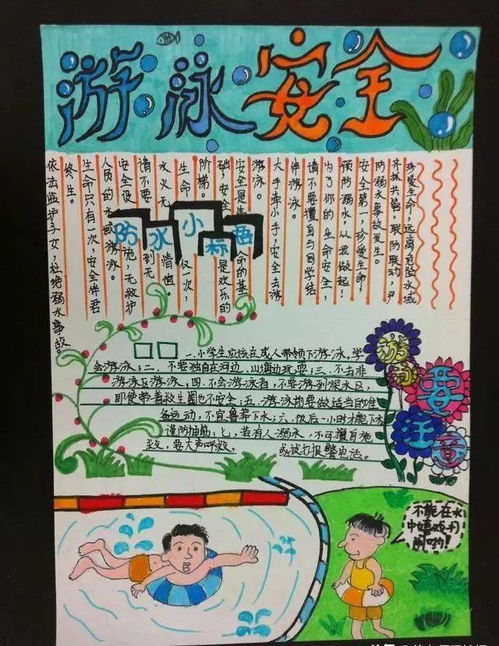 游泳安全
珍爱生命,远离危险水域
齐抓共管,联防联动,严
防溺水事故发生。
安全第一,珍爱生命!
预防溺水,从我做起!
为了你的生命安全,
请不要擅自与同学结
伴游泳。
大手牵小手,安全去游
游泳。
安全是生命的基
础,安全是欢乐的
阶梯。
生命 仅一次,
水火无情
请不要到无
安全设施,无救护
人员的水域游泳。
生命只有一次,安全伴君
终生。
依法监护子女,杜绝溺水事故。
防水小标语
一.小学生应该在成人带领下游泳,学
会游泳;二、不要独自在河边、山塘边玩耍;三、不去非
游泳区游泳;四、不会游泳者,不要游到深水区,
即使带着救生圈也不安全;五、游泳前要做适当的准
备运动,不宜鲁莽下水;六、饭后一小时才能下水
谨防抽筋;七、若有人溺水,不可擅自施
救,要大声呼救。 或拨打报警电话。
游泳
要
注意
不能在水
中嬉戏打
闹哟!